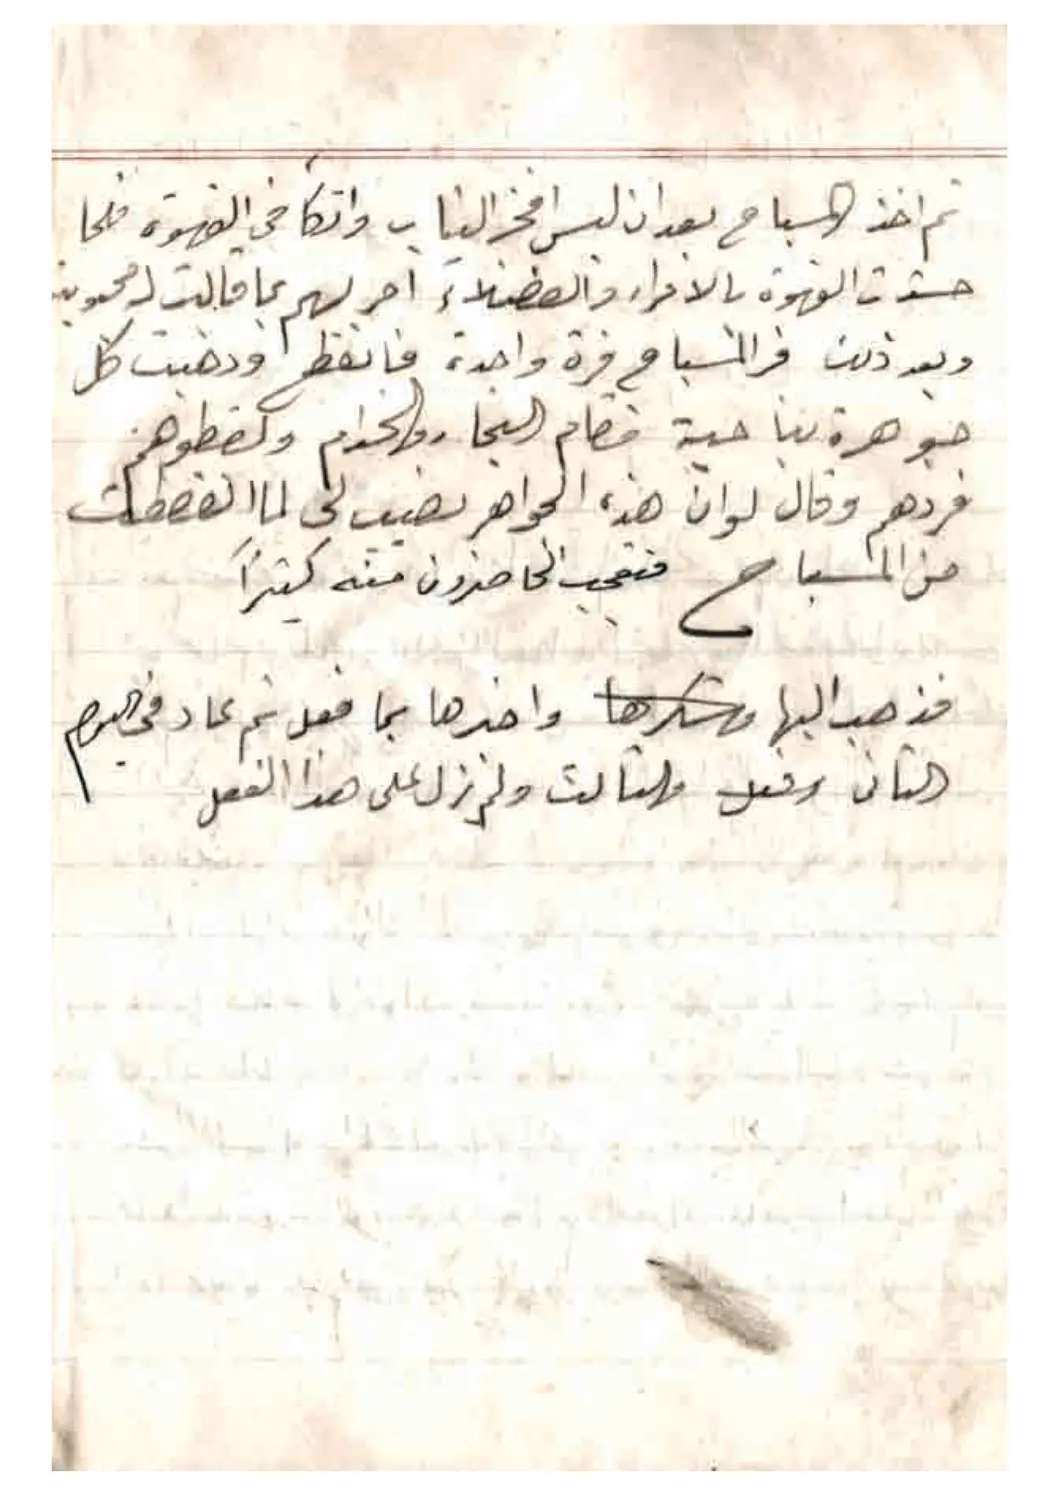 ثم اخذ المسباح بعد ان لبس افخر الثياب واتكا في القهوة فلما
حشدت القهوة بالامراء والفضلاء امر لهم بما قالت له محبوبته
وبعد ذلك فر المسباح فرة واحدة فانفظ وذهبت كل
جوهرة بناحية فقام التجار والخدام ولقطوهم
فردهم وقال لوان هذه الجواهر نصيب لي لما انفصلت
من المسباح فتعجب الحاضرون منه كثيراً
فذهب اليها وشكرها واخبرها بما فعل ثم عاد في اليوم
الثاني وفعل والثالث ولم نزل على هذا الفعل